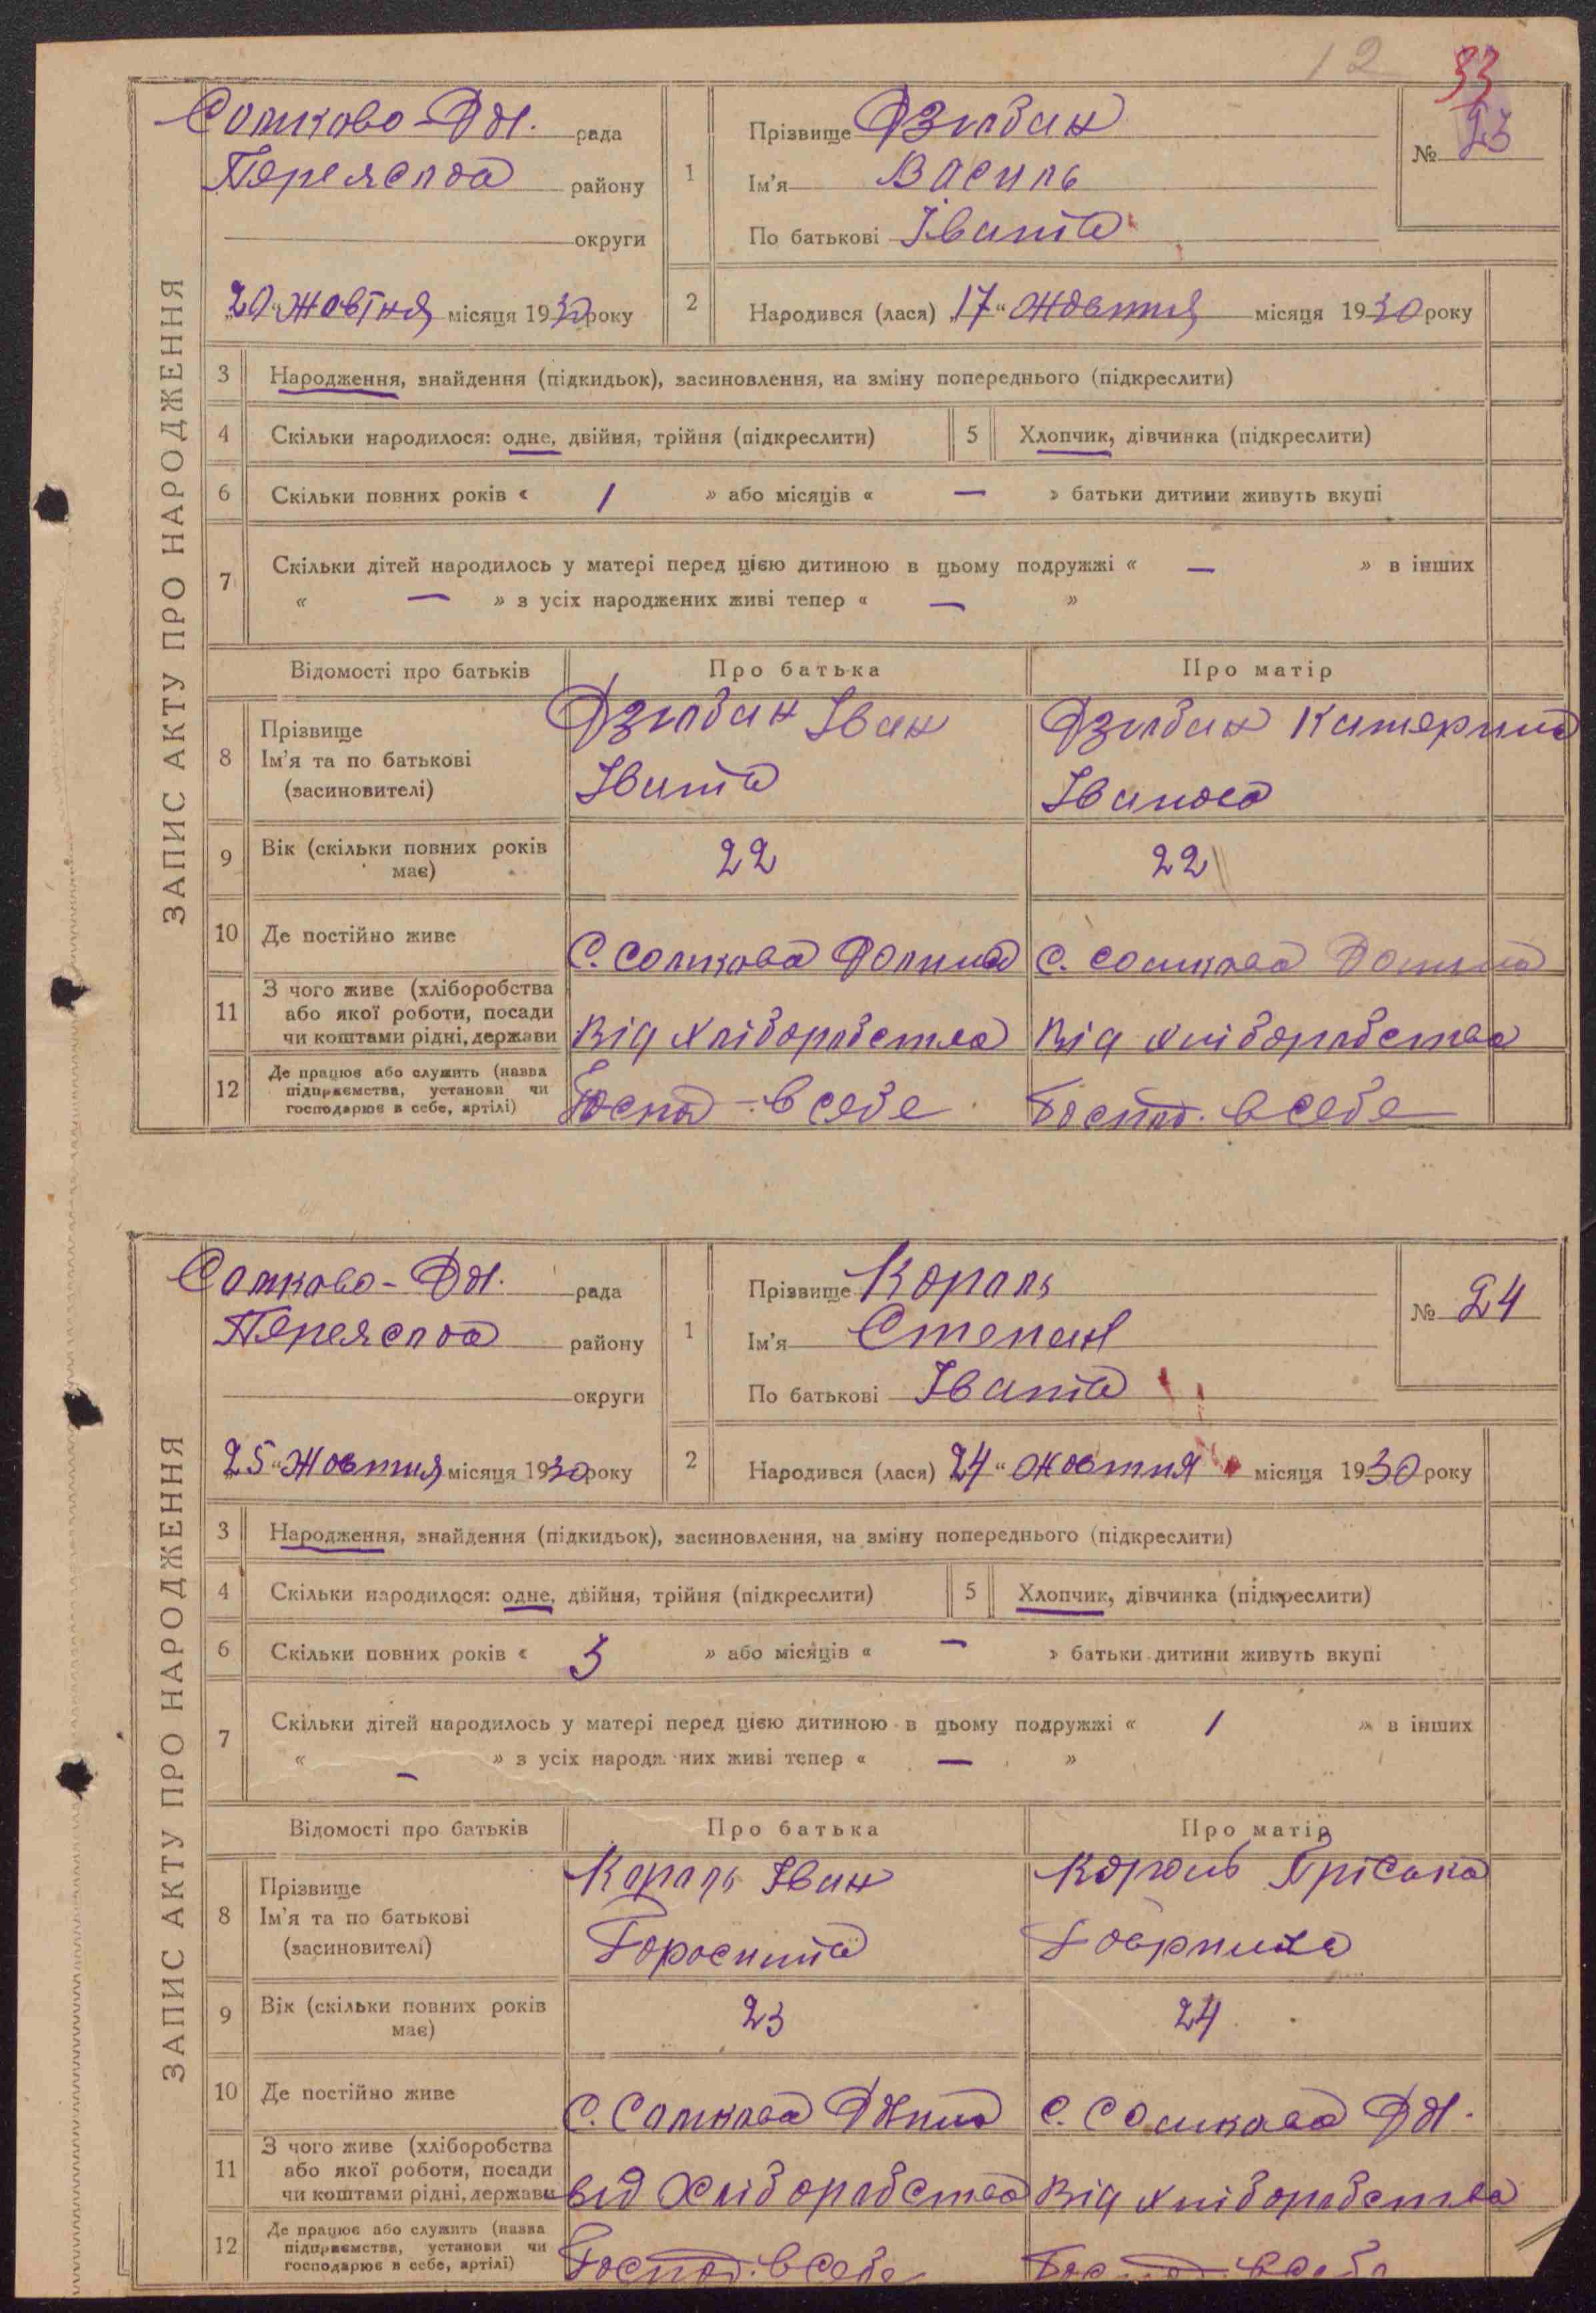 12
33
ЗАПИС АКТУ ПРО НАРОДЖЕННЯ
Сомково-Дол. рада
Переяслов району
округи
20 “ Жовтня місяця 1930 року
1
Прізвище Дзюбан
Ім'я Василь
По батькові Іванов
№ 23
2 Народився (лася) 17 “ Жовтня місяця 1930 року
3 Народження, знайдення (підкидьок), засиновлення, на зміну попереднього (підкреслити)
4 Скільки народилося: одне, двійня, трійня (підкреслити) 5 Хлопчик, дівчинка (підкреслити)
6 Скільки повних років « 1 » або місяців « — » батьки дитини живуть вкупі
7 Скільки дітей народилось у матері перед цією дитиною в цьому подружжі « — » в інших
« — » з усіх народжених живі тепер « — »
Відомості про батьків Про батька Про матір
8 Прізвище Ім'я та по батькові (засиновителі)
Дзюбан Іван
Іванов
Дзюбан Катерина
Іванова
9 Вік (скільки повних років має) 22 22
10 Де постійно живе С. Сомкова Долина С. Сомкова Долина
11 З чого живе (хліборобства або якої роботи, посади чи коштами рідні, держави Від хліборобства Від хліборобства
12 Де працює або служить (назва підприємства, установи чи господарює в себе, артілі) Господ. в себе Господ. в себе
ЗАПИС АКТУ ПРО НАРОДЖЕННЯ
Сомково-Дол. рада
Переяслов району
округи
25 “ Жовтня місяця 1930 року
1
Прізвище Король
Ім'я Степан
По батькові Іванов
№ 24
2 Народився (лася) 24 “ жовтня місяця 1930 року
3 Народження, знайдення (підкидьок), засиновлення, на зміну попереднього (підкреслити)
4 Скільки народилося: одне, двійня, трійня (підкреслити) 5 Хлопчик, дівчинка (підкреслити)
6 Скільки повних років « 3 » або місяців « — » батьки дитини живуть вкупі
7 Скільки дітей народилось у матері перед цією дитиною в цьому подружжі « 1 » в інших
« — » з усіх народжених живі тепер « — »
Відомості про батьків Про батька Про матір
8 Прізвище Ім'я та по батькові (засиновителі)
Король Іван
Король Пріська
9 Вік (скільки повних років має) 23 24
10 Де постійно живе С. Сомкова С. Сомкова Дол.
11 З чого живе (хліборобства або якої роботи, посади чи коштами рідні, держави від Хліборобства Від хліборобства
12 Де працює або служить (назва підприємства, установи чи господарює в себе, артілі) Господ. в себе Господ. в себе